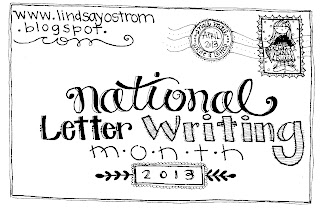 www.lindsayostrom
.blogspot.
com
APRIL
2013
national
Letter Writing
m·o·n·t·h
2013